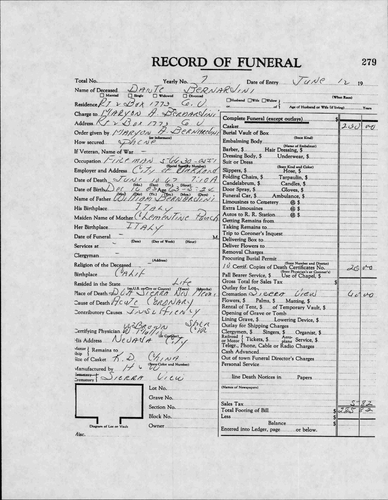 RECORD OF FUNERAL 279
Total No. Yearly No. 7 Date of Entry JUNE 12 19
Name of Deceased DANTE BERNARDINI
Married Single Widowed Divorced
Residence RT 2 BOX 1772 G.V.
Husband Wife Widow of
Age of Husband or Wife (if living) Years
Charge to MARYON A BERNARDINI
Complete Funeral (except outlays) $
Address RT 2 BOX 1772 G.V.
Casket 230 00
Order given by MARYON A BERNARDINI
Burial Vault of Box
(State Kind)
How secured PHONE
Embalming Body
(Name of Embalmer)
If Veteran, Name of War
Barber, $ Hair Dressing, $
Dressing Body, $ Underwear, $
Occupation FIREMAN
Suit or Dress
(State Kind and Color)
Employer and Address CITY OF OAKLAND
Slippers, $ Hose, $
Date of Death JUNE
Folding Chairs, $ Tarpaulin, $
Candelabrum, $ Candles, $
Date of Birth
Door Spray, $ Gloves, $
Name of Father WILLIAM BERNARDINI
Funeral Car, $ Ambulance, $
Limousines to Cemetery @ $
His Birthplace ITALY
Extra Limousines @ $
Maiden Name of Mother CLEMENTINE
Autos to R. R. Station @ $
Getting Remains from
Her Birthplace ITALY
Taking Remains to
Date of Funeral
Trip to Coroner's Inquest
(Date) (Day of Week) (Hour)
Delivering Box to
Services at
Deliver Flowers to
Clergyman
Removal Charges
(Address)
Procuring Burial Permit
Religion of the Deceased
10 Certif. Copies of Death Certificates No. 20 00
Birthplace CALIF
Pall Bearer Service, $ Use of Chapel, $
Resided in the State LIFE
Gross Total for Sales Tax $
Outlay for Lot,
Place of Death DOA SIERRA NEV
SIERRA VIEW 40 00
Cause of Death ACUTE CORONARY
Flowers, $ Palms, $ Matting, $
Rental of Tent, $ of Temporary Vault, $
Contributory Causes INSUFFICIENCY
Opening of Grave or Tomb
Lining Grave, $ Lowering Device, $
Outlay for Shipping Charges
Certifying Physician
Clergymen, $ Singers, $ Organist, $
His Address NEVADA CITY
Telegr., Phone, Cable or Radio Charges
Cash Advanced
Remains to
Out of town Funeral Director's Charges
Size of Casket
Personal Service
Manufactured by
line Death Notices in Papers
Cemetery SIERRA VIEW
(Names of Newspapers)
Lot No.
Grave No.
Section No.
Sales Tax
Block No.
Total Footing of Bill $
Less
Owner
Balance $
Diagram of Lot or Vault
Entered into Ledger, page or below.